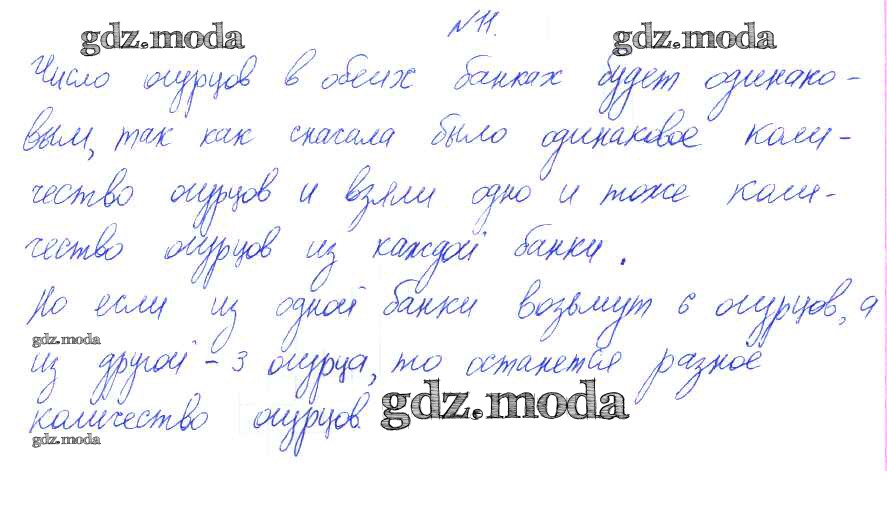 № 11.
gdz.moda gdz.moda
Число огурцов в обеих банках будет одинако-
вым, так как сначала было одинаковое коли-
чество огурцов и взяли одно и тоже коли-
чество огурцов из каждой банки.
Но если из одной банки возьмут 6 огурцов, а
gdz.moda
из другой - 3 огурца, то останется разное
количество огурцов.
gdz.moda
gdz.moda